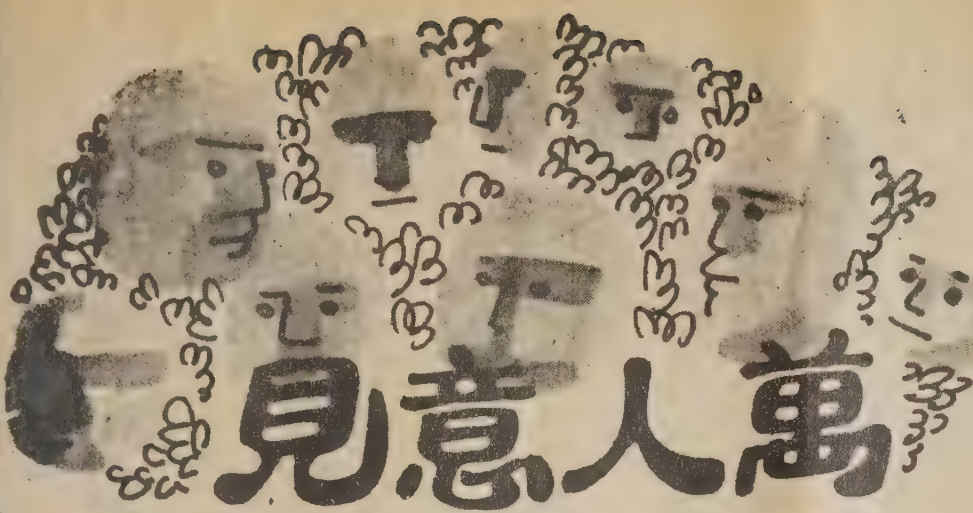 萬人意見